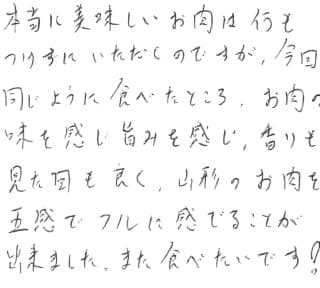 本当に美味しいお肉は何も
つけずにいただくのですが、今回
同じように食べたところ、お肉の
味を感じ旨みを感じ、香りも
見た目も良く、山形のお肉を
五感でフルに感でることが
出来ました。また食べたいです!